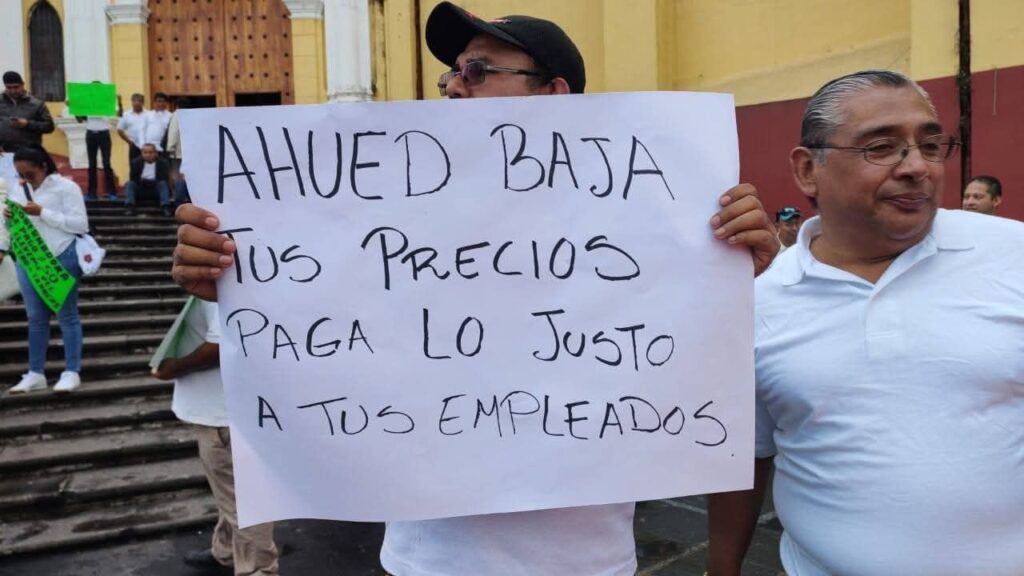 AHUED BAJA
TUS PRECIOS
PAGA LO JUSTO
A TUS EMPLEADOS.